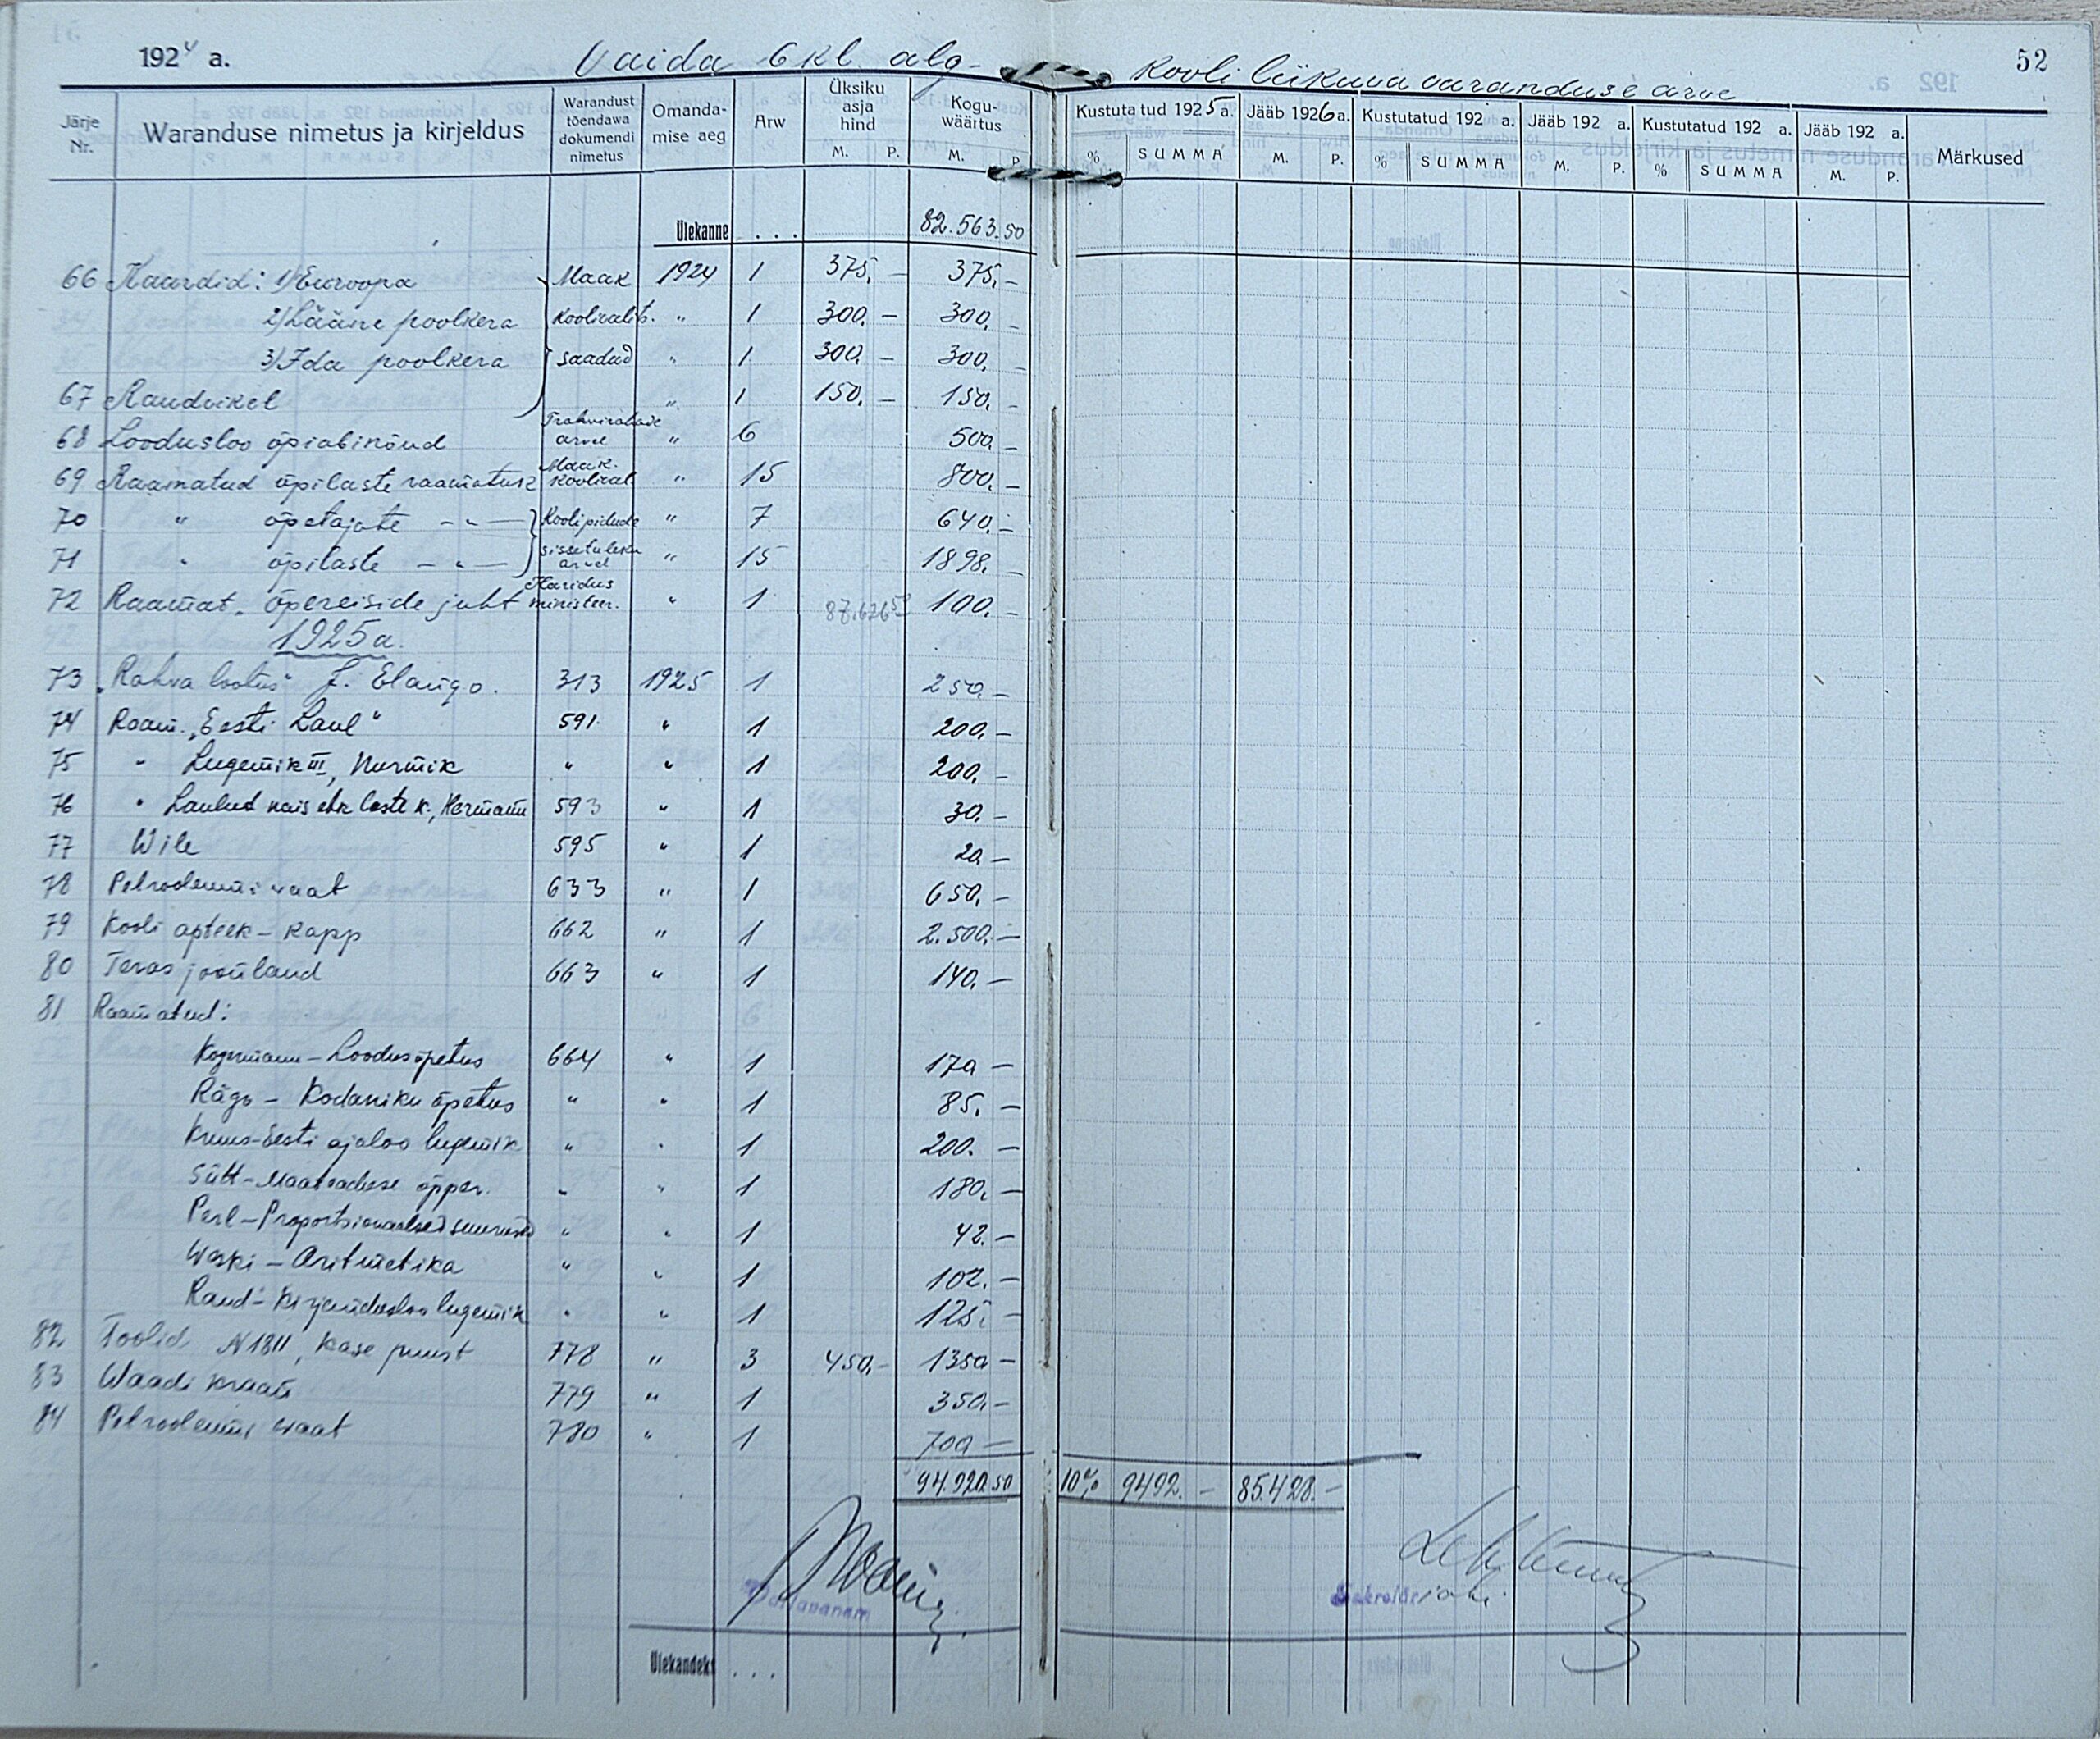 1924 a. Vaida 6 kl. alg- kooli liikuva varanduse arve 52
Järje Nr. Waranduse nimetus ja kirjeldus Warandust tõendawa dokumendi nimetus Omandamise aeg Arw Üksiku asja hind M. P. Koguwäärtus M. P. Kustutatud 1925 a. % SUMMA Jääb 1926 a. M. P. Kustutatud 192 a. % SUMMA Jääb 192 a. M. P. Kustutatud 192 a. % SUMMA Jääb 192 a. M. P. Märkused
Ülekanne . . . 82.563.50
66 Kaardid: 1) Euroopa Maak 1924 1 375,- 375,-
2) Lääne poolkera koolivalits. " 1 300,- 300,-
3) Ida poolkera saadud " 1 300,- 300,-
67 Raudvikel " 1 150,- 150,-
68 Loodusloo õpiabinõud Trahvirahade arvel " 6 500,-
69 Raamatud õpilaste raamatuk Maak. koolival. " 15 800,-
70 " õpetajate - " - Koolipidude " 7 640,-
71 " õpilaste - " - sissetuleku arvel " 15 1898,-
72 Raamat „õpereiside juht Haridus ministeer. " 1 87.626 50 100,-
1925 a.
73 „Rahva lootus" J. Elango. 313 1925 1 250,-
74 Raam. „Eesti Laul" 591 " 1 200,-
75 " Lugemik III, Nurmik " " 1 200,-
76 " Laulud nais ehk laste k., Hermann 593 " 1 30,-
77 Wile 595 " 1 20,-
78 Petrooleumi waat 633 " 1 650,-
79 Kooli apteek-kapp 662 " 1 2.500,-
80 Teras jooulaud 663 " 1 140,-
81 Raamatud:
Kogermann - Loodusõpetus 664 " 1 170,-
Rägo - Kodaniku õpetus " " 1 85,-
Kruus - Eesti ajaloo lugemik " " 1 200.-
Sütt - Maateaduse õpper. " " 1 180,-
Perl - Proportsionaalsed suurused " " 1 42.-
Waski - Aritmetika " " 1 102.-
Raud - Kirjandusloo lugemik " " 1 125,-
82 Toolid N 1811, kase puust 778 " 3 450,- 1350,-
83 Waadi kraan 779 " 1 350,-
84 Petrooleumi waat 780 " 1 700,-
94.920.50 10% 9492.- 85.428.-
Sekretäri abi
Ülekandeks . . .